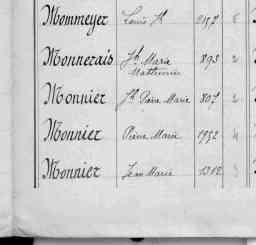 Mommeyer Louis Jh
Monnerais Jh Marie 893 2
Mathurin
Monnier Jh Pierre Marie 807 2
Monnier Pierre Marie 1932 4
Monnier Jean Marie 1312 3